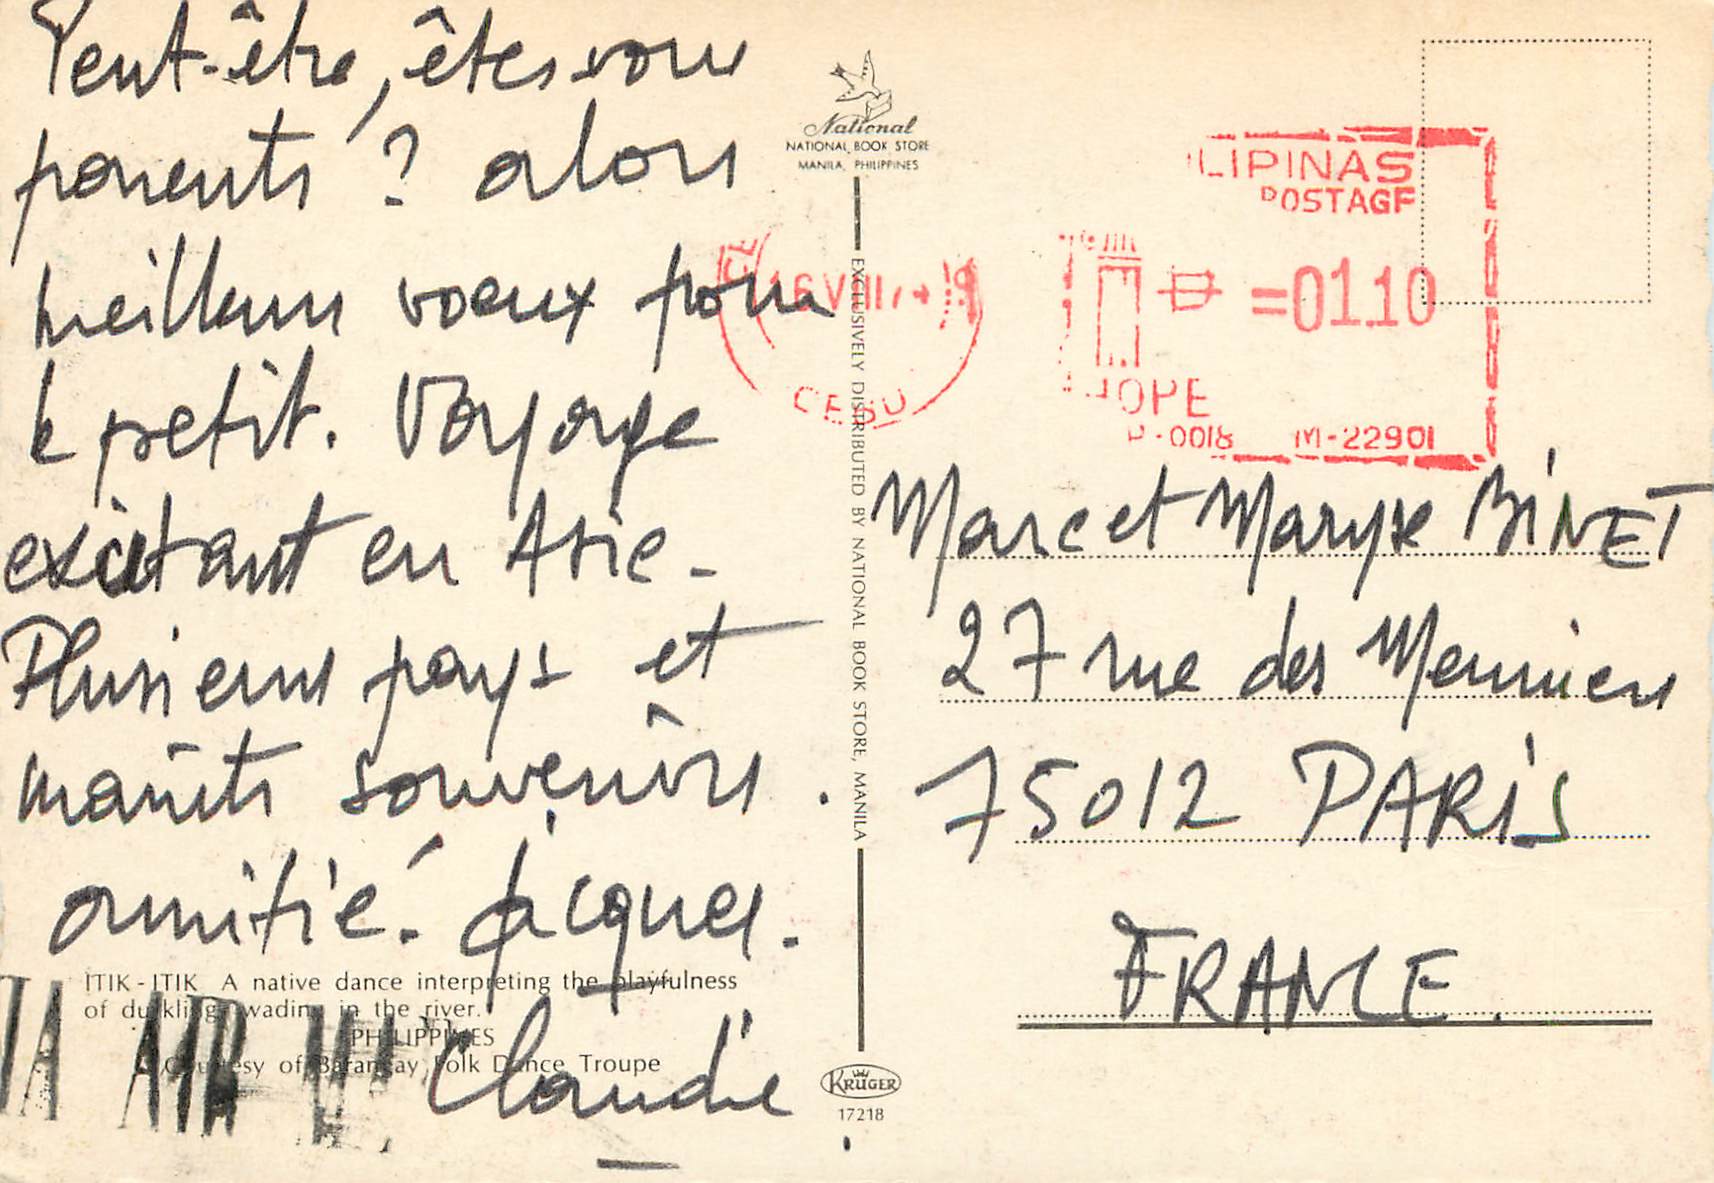 Peut-être, êtes vous
parents ? alors
meilleurs voeux pour
le petit. Voyage
excitant en Asie.
Plusieurs pays et
maints souvenirs.
amitié. Jacques.
Claudie
ITIK - ITIK A native dance interpreting the playfulness
of ducklings wading in the river.
PHILIPPINES
Courtesy of Barangay Folk Dance Troupe
AIR
National
NATIONAL BOOK STORE
MANILA, PHILIPPINES
EXCLUSIVELY DISTRIBUTED BY NATIONAL BOOK STORE, MANILA
KRÜGER
17218
CEBU
LIPINAS
POSTAGE
=01.10
OPE
-0018 M-22901
Marc et Maryse BINET
27 rue des Meuniers
75012 PARIS
FRANCE.